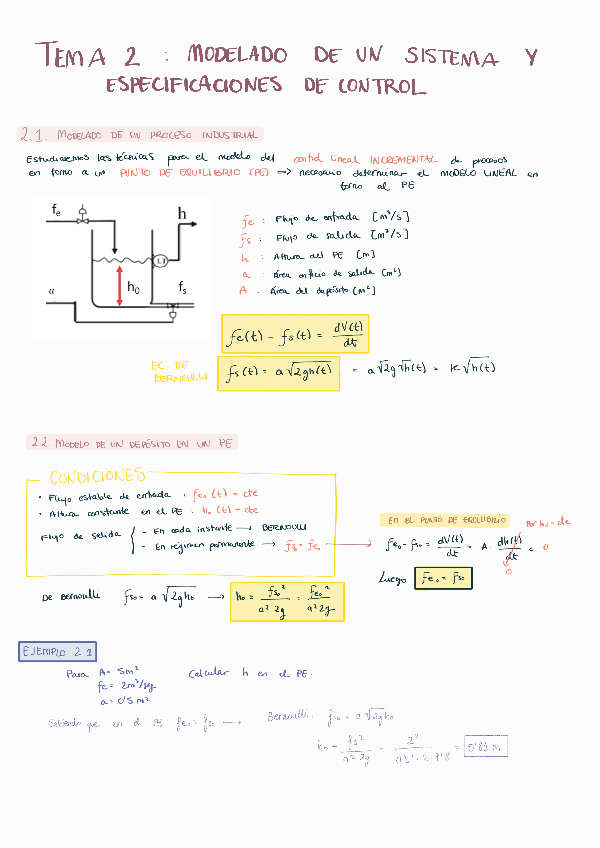 TEMA 2 : MODELADO DE UN SISTEMA Y
ESPECIFICACIONES DE CONTROL
2.1. MODELADO DE UN PROCESO INDUSTRIAL
Estudiaremos las técnicas para el modelo del control lineal INCREMENTAL de procesos
en torno a un PUNTO DE EQUILIBRIO (PE) => necesario determinar el MODELO LINEAL en
torno al PE
fe h
LT
h₀
u fs
fe : Flujo de entrada [m³/s]
fs : Flujo de salida [m³/s]
h : Altura del PE [m]
a : Área orificio de salida [m²]
A : Área del depósito [m²]
fe(t) - fs(t) = dV(t)/dt
EC. DE BERNOULLI
fs(t) = a √2gh(t) = a√2g √h(t) = K√h(t)
2.2 MODELO DE UN DEPÓSITO EN UN PE
CONDICIONES
• Flujo estable de entrada : fe₀(t) = cte
• Altura constante en el PE : h₀(t) = cte
Flujo de salida { - En cada instante → BERNOULLI
- En régimen permanente → fs = fe
EN EL PUNTO DE EQUILIBRIO
Por h₀ = cte
fe₀ - fs₀ = dV(t)/dt = A · dh(t)/dt = 0
0
Luego fe₀ = fs₀
De Bernoulli fs₀ = a √2gh₀ → h₀ = fs₀²/a² 2g = fe₀²/a² 2g
EJEMPLO 2.1
Para A = 5m² Calcular h en el PE.
fe = 2m³/seg
a = 0'5 m²
Sabiendo que en el PE fe₀ = fs₀ → Bernoulli: fs₀ = a √2gh₀
h₀ = fs²/a² 2g = 2²/0'5² · 2 · 9'8 = 0'81 m